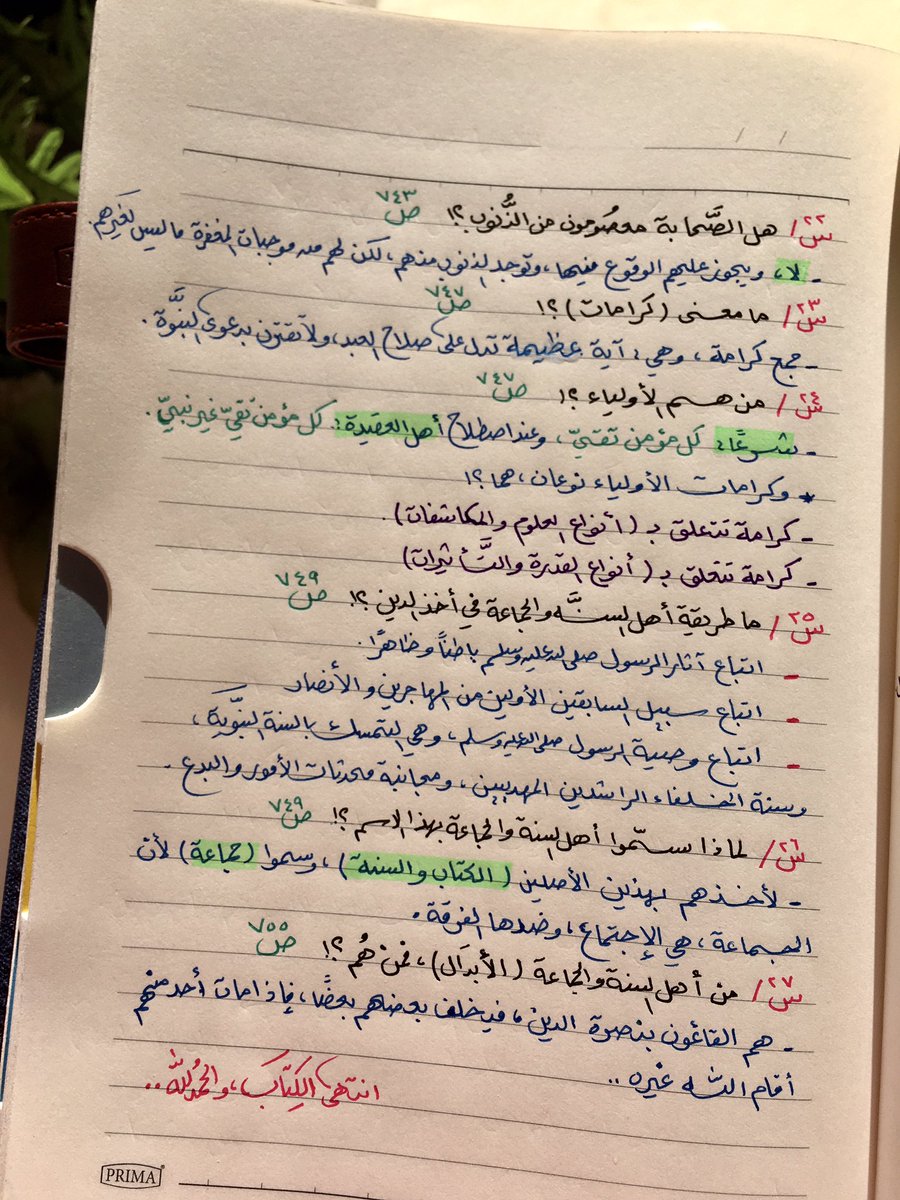 س٢٢/ هل الصَّحابة معصُومون من الذُّنوب؟! ص٧٤٣
- لا، ويجوز عليهم الوقوع فيها، وتوجد لذنوب منهم، لكن لهم من موجبات المغفرة ما ليس لغيرهم.
س٢٣/ ما معنى (كرامات)؟! ص٧٤٧
- جمع كرامة، وهي: آية عظيمة تدل على صلاح العبد، ولا تقترن بدعوى النبوَّة.
س٢٤/ من هم الأولياء؟! ص٧٤٧
- شرعًا: كل مؤمن تقيّ، وعند اصطلاح أهل العقيدة: كل مؤمن تقيّ غير نبيّ.
* وكرامات الأولياء نوعان، هما؟!
- كرامة تتعلق بـ (أنواع العلوم والمكاشفات).
- كرامة تتعلق بـ (أنواع القدرة والتَّأثيرات)
س٢٥/ ما طريقة أهل السنَّه والجماعة في أخذ الدين؟! ص٧٤٩
- اتباع آثار الرسول صلى الله عليه وسلم باطناً وظاهرًا.
- اتباع سبيل السابقين الأولين من المهاجرين والأنصار
- اتباع وصية الرسول صلى الله عليه وسلم، وهي التمسك بالسنة النبَّوية،
وسنة الخلفاء الراشدين المهديين، ومجانبة محدثات الأمور والبدع.
س٢٦/ لماذا سمّوا أهل السنة والجماعة بهذا الاسم؟! ص٧٤٩
- لأخذهم بهذين الأصلين (الكتاب والسنة)، وسموا (جماعة) لأن
الجماعة، هي الإجتماع، وضدها الفرقة.
س٢٧/ من أهل السنة والجماعة (الأبدَال)، فمن هُم؟! ص٧٥٥
- هم القائمون بنصرة الدين، فيخلف بعضهم بعضًا، فإذا مات أحد منهم
أقام الله غيره..
انتهى الكِتَاب، والحمُدلله..
PRIMA